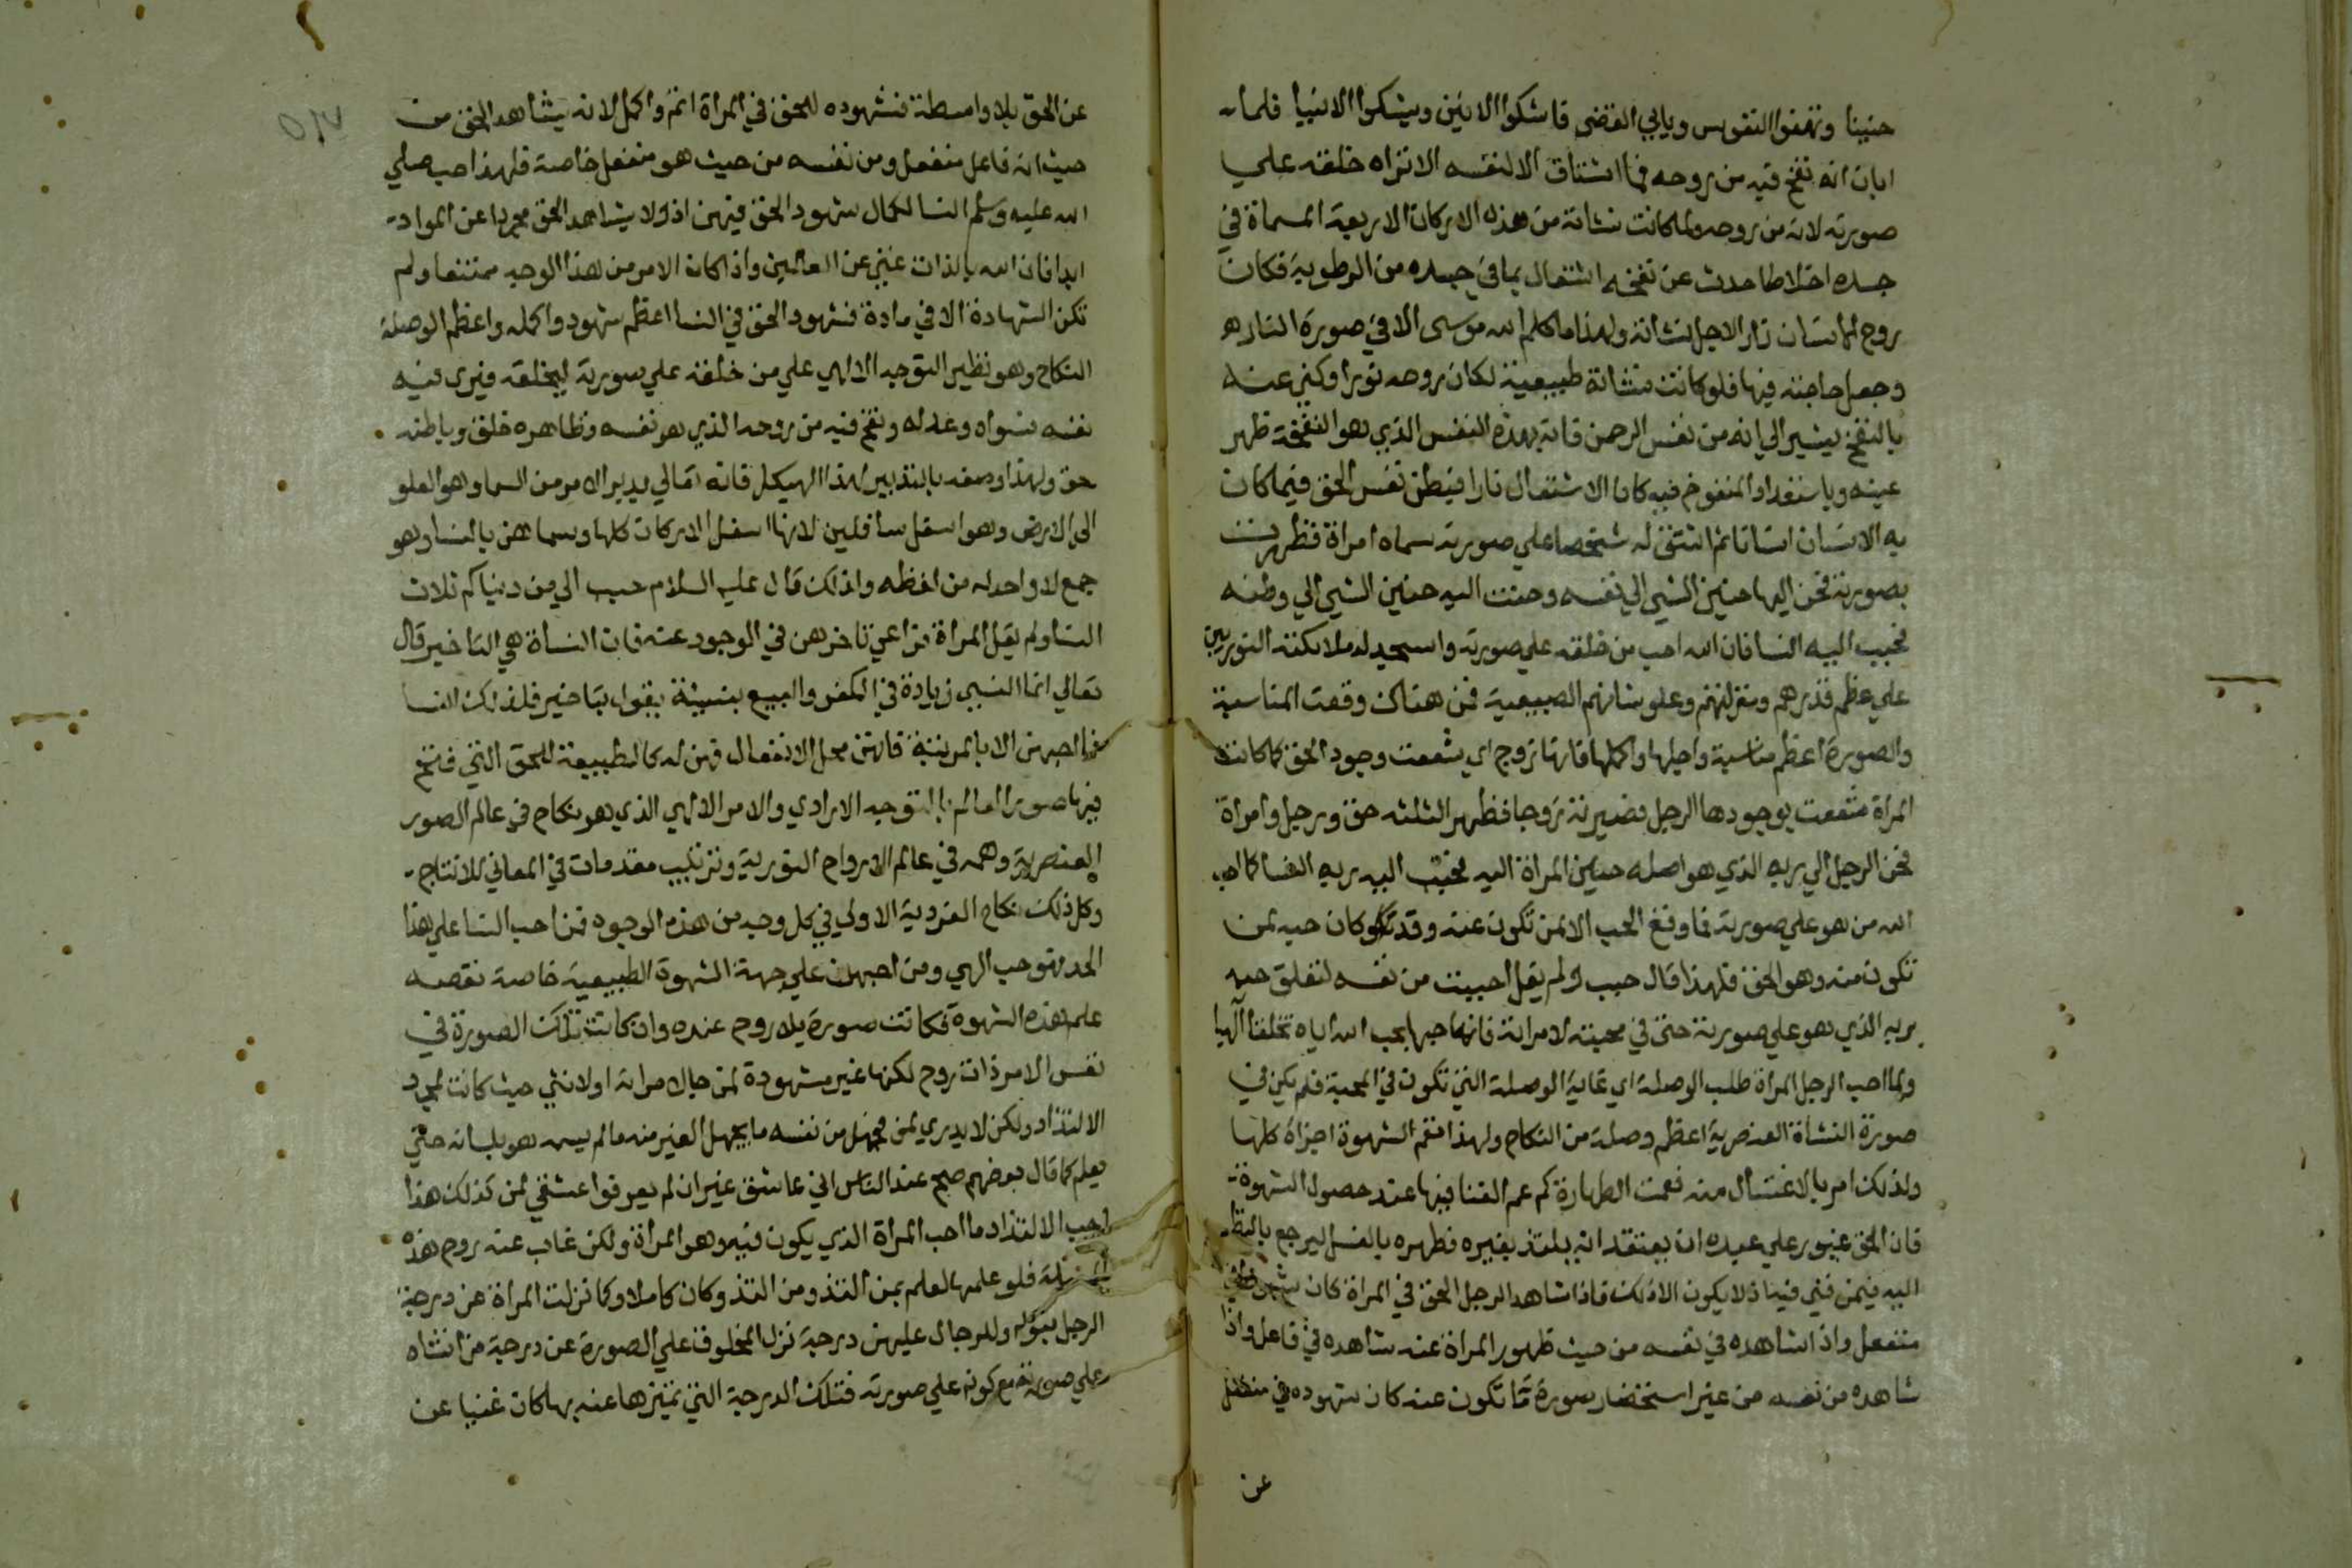 حنينا وتهفوا النفوس ويابي القضى فاشكوا الانين ويشكوا الانينا فلما
ابان انه نفخ فيه من روحه فما اشتاق الا لنفسه الا تراه خلقه علي
صورته لانه من روحه ولما كانت نشاته من هذه الاركان الاربعة المسماة في
جسده اخلاطا حدث عن نفخه اشتعال بما في جسده من الرطوبة فكان
روح الانسان نارا لاجل نشاته ولهذا ما كلم الله موسى الا في صورة النار
وجعل حاجته فيها فلو كانت نشاته طبيعية لكان روحه نورا وكني عنه
بالنفخ يشير الي انه من نفس الرحمن فانه بهذه النفس الذي هو النفخة ظهر
عينه وباستعداد المنفوخ فيه كان الاشتعال نارا فبطن نفس الحق فيما كان
به الانسان انسانا ثم اشتق له شخصا علي صورته سماه امراة فظهرت
بصورته فحن اليها حنين الشي الي نفسه وحنت اليه حنين الشي الي وطنه
فحبب اليه النسا فان الله احب من خلقه علي صورته واسجد له ملائكته النوريين
علي عظم قدرهم ومنزلتهم وعلو نشاتهم الطبيعية فمن هناك وقعت المناسبة
والصورة اعظم مناسبة واجلها واكملها فانها زوج اي شفعت وجود الحق كما كانت
المراة شفعت بوجودها الرجل فصيرته زوجا فظهر الثلثه حق ورجل وامراة
فحن الرجل الي ربه الذي هو اصله حنين المراة اليه فحبب اليه ربه النسا كما احب
الله من هو علي صورته فما وقع الحب الا لمن تكون عنه وقد كان حبه لمن
تكون منه وهو الحق فلهذا قال حبب ولم يقل احببت من نفسه لتعلق حبه
بربه الذي هو علي صورته حتى في محبته لامراته فانه احبها بحب الله اياه تخلقا الهيا
ولما احب الرجل المراة طلب الوصلة اي غاية الوصلة التي تكون في المحبة فلم يكن في
صورة النشاة العنصرية اعظم وصلة من النكاح ولهذا تعم الشهوة اجزاه كلها
ولذلك امر بالاغتسال منه فعمت الطهارة كما عم الفنا فيها عند حصول الشهوة
فان الحق غيور علي عبده ان يعتقد انه يلتذ بغيره فطهره بالغسل ليرجع بالنظر
اليه فيمن فني فيه اذ لا يكون الا ذلك فاذا شاهد الرجل الحق في المراة كان شهودا في
منفعل واذا شاهده في نفسه من حيث ظهور المراة عنه شاهده في فاعل واذا
شاهده من نفسه من غير استحضار صورة ما تكون عنه كان شهوده في منفعل
عن
عن الحق بلا واسطة فشهوده للحق في المراة اتم واكمل لانه يشاهد الحق من
حيث انه فاعل منفعل ومن نفسه من حيث هو منفعل خاصة فلهذا احب صلي
الله عليه وسلم النسا لكمال شهود الحق فيهن اذ لا يشاهد الحق مجردا عن المواد
ابدا فان الله بالذات غني عن العالمين واذا كان الامر من هذا الوجه ممتنعا ولم
تكن الشهادة الا في مادة فشهود الحق في النسا اعظم شهود واكمله واعظم الوصلة
النكاح وهو نظير التوجه الالهي علي من خلقه علي صورته ليخلقه فيرى فيه
نفسه فسواه وعدله ونفخ فيه من روحه الذي هو نفسه فظاهره خلق وباطنه
حق ولهذا وصفه بالتدبير لهذا الهيكل فانه تعالي يدبر الامر من السما وهو العلو
الى الارض وهو اسفل سافلين لانها اسفل الاركان كلها وسماهن بالنسا وهو
جمع لا واحد له من لفظه ولذلك قال عليه السلام حبب الي من دنياكم ثلاث
النسا ولم يقل المراة فراعي تاخرهن في الوجود عنه فان النساة هي التاخير قال
تعالي انما النسي زيادة في الكفر والبيع بنسيئة يقول بتاخير فلذلك النسا
فما احبهن الا بالمرتبة فانهن محل الانفعال فهن له كالطبيعة للحق التي فتح
فيها صور العالم بالتوجه الارادي والامر الالهي الذي هو نكاح في عالم الصور
العنصرية وهمة في عالم الارواح النورية وترتيب مقدمات في المعاني للانتاج
وكل ذلك نكاح الفردية الاولي في كل وجه من هذه الوجوه فمن احب النسا علي هذا
الحد فهو حب الهي ومن احبهن علي جهة الشهوة الطبيعية خاصة نقصه
علم هذه الشهوة فكانت صورة بلا روح عنده وان كانت تلك الصورة في
نفس الامر ذات روح لكنها غير مشهودة لمن جاء امراته او لانثي حيث كانت لمجرد
الالتذاذ ولكن لا يدري لمن فجهل من نفسه ما يجهل الغير منه ما لم يسمه هو بلسانه حتي
يعلم كما قال بعضهم صح عند الناس اني عاشق غير ان لم يعرفوا عشقي لمن كذلك هذا
احب الالتذاذ فاحب المراة الذي يكون فيه وهو المراة ولكن غاب عنه روح هذه
المسئلة فلو علمها لعلم بمن التذ ومن التذ وكان كاملا وكما نزلت المراة عن درجة
الرجل بقوله وللرجال عليهن درجة نزل المخلوق علي الصورة عن درجة من انشاه
علي صورته مع كونه علي صورته فتلك الدرجة التي تميز بها عنه بها كان غنيا عن